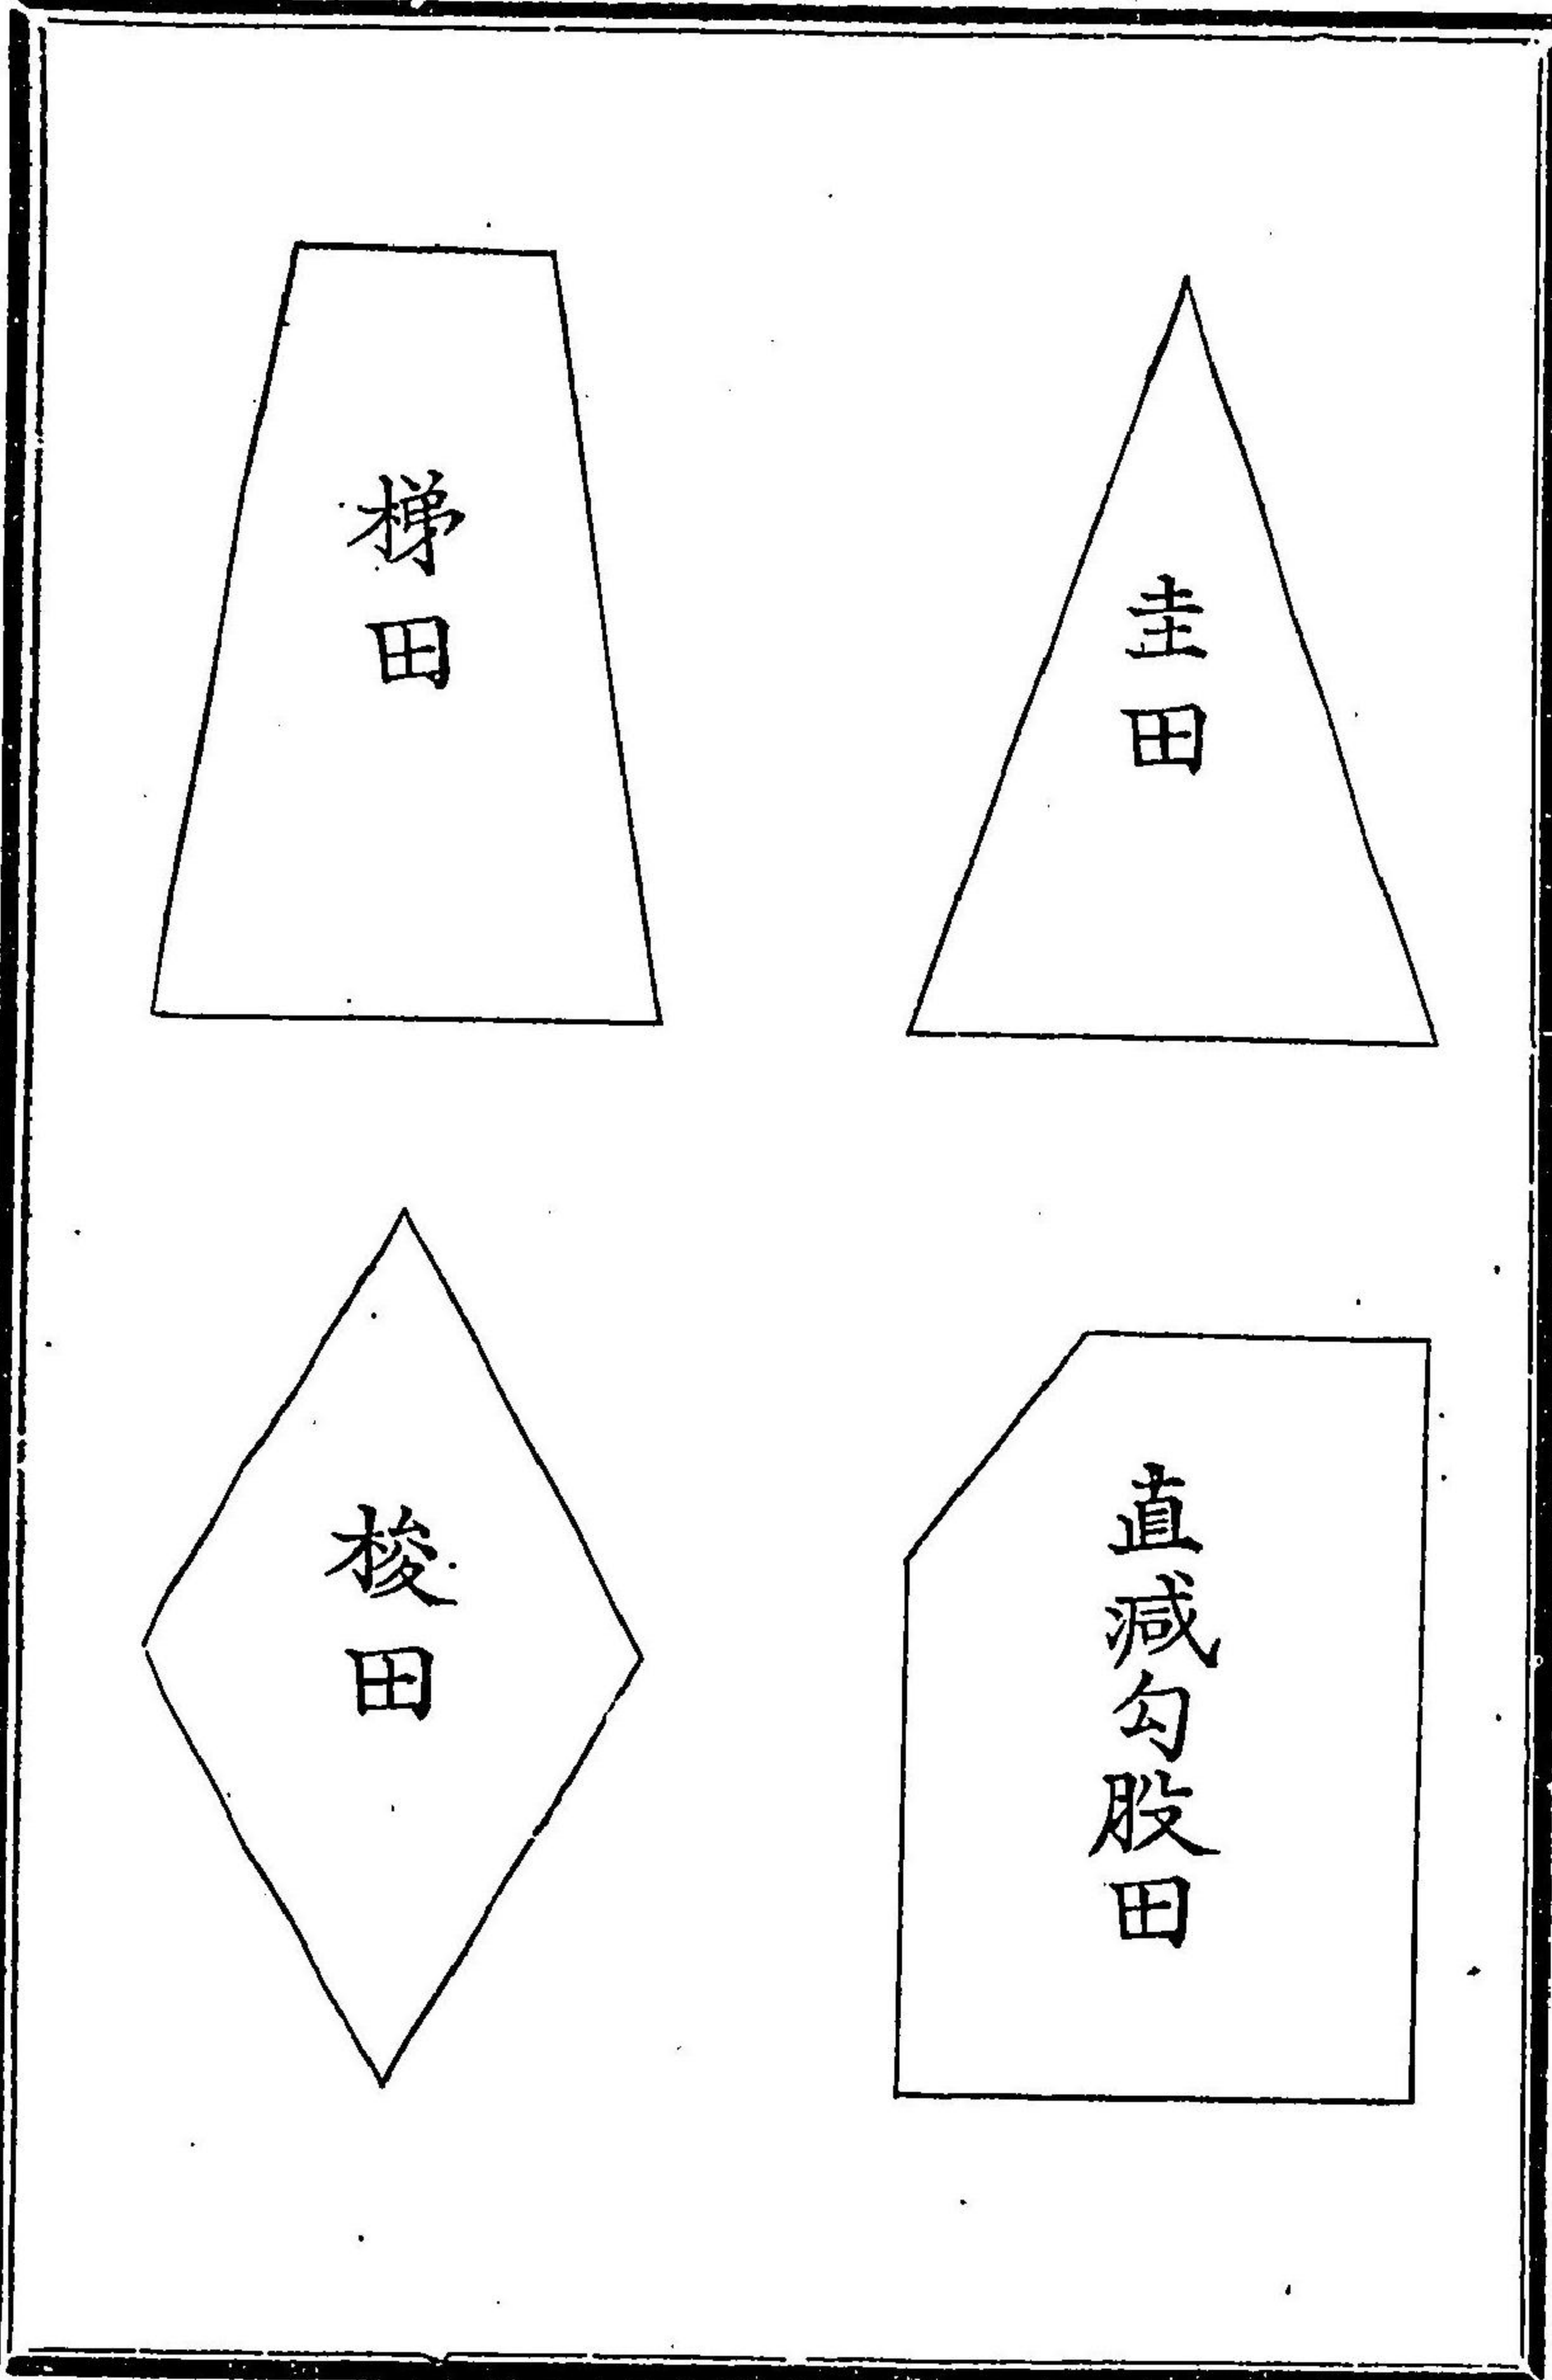 圭田
直減勾股田
梯田
梭田